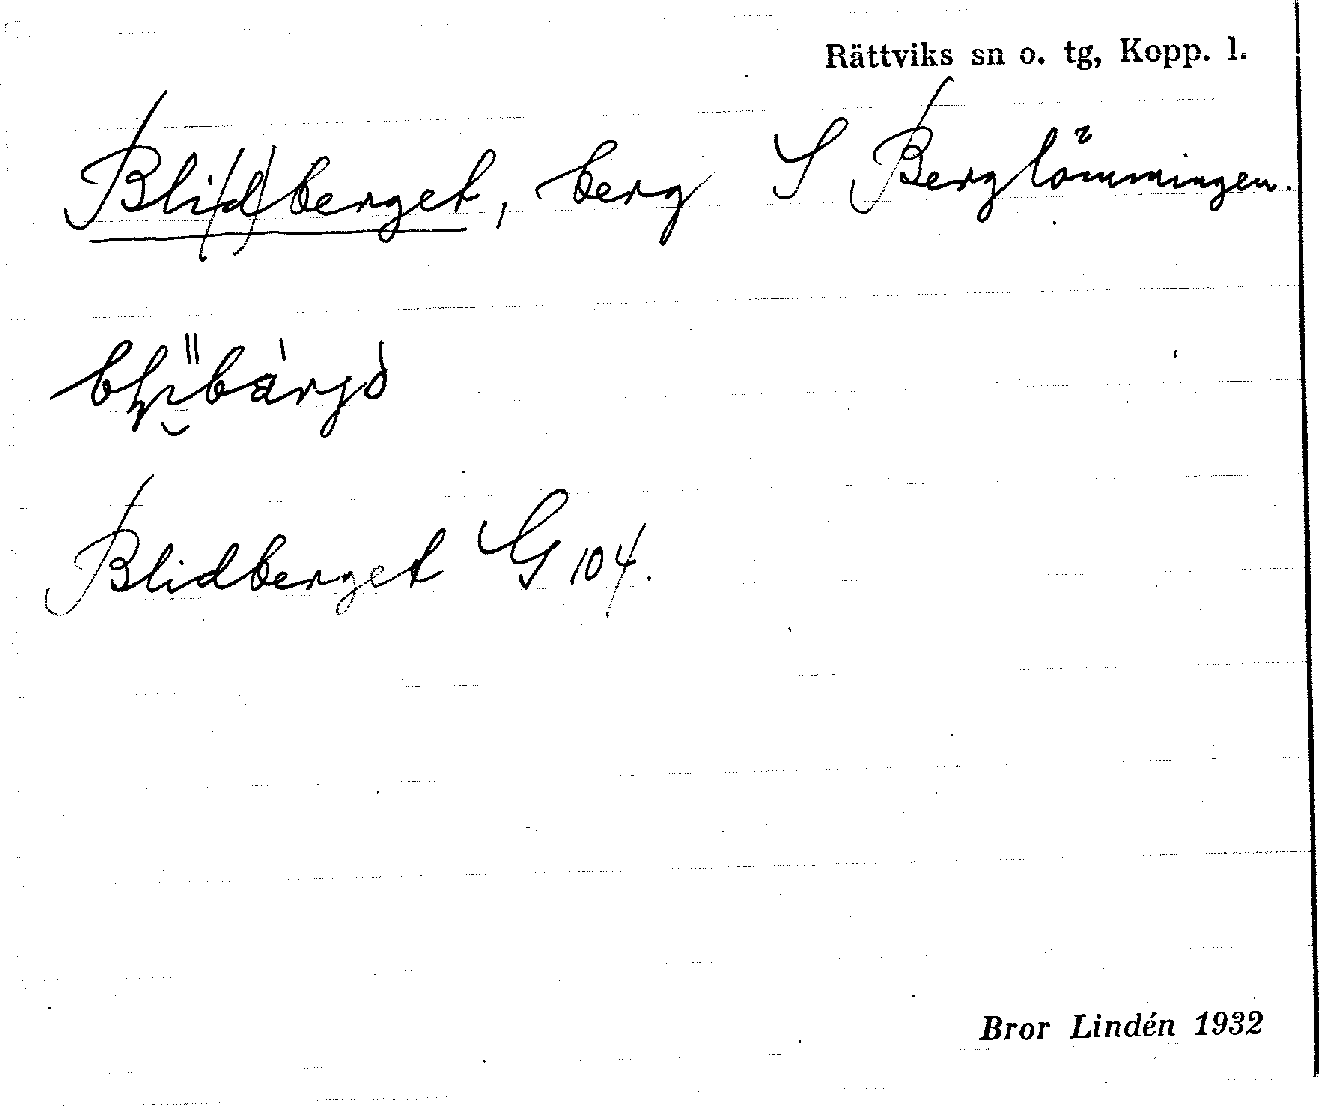 Rättviks sn o. tg, Kopp. l.
Bli(d)berget, berg S Berglömmingen.
Blidberget G 104.
Bror Lindén 1932